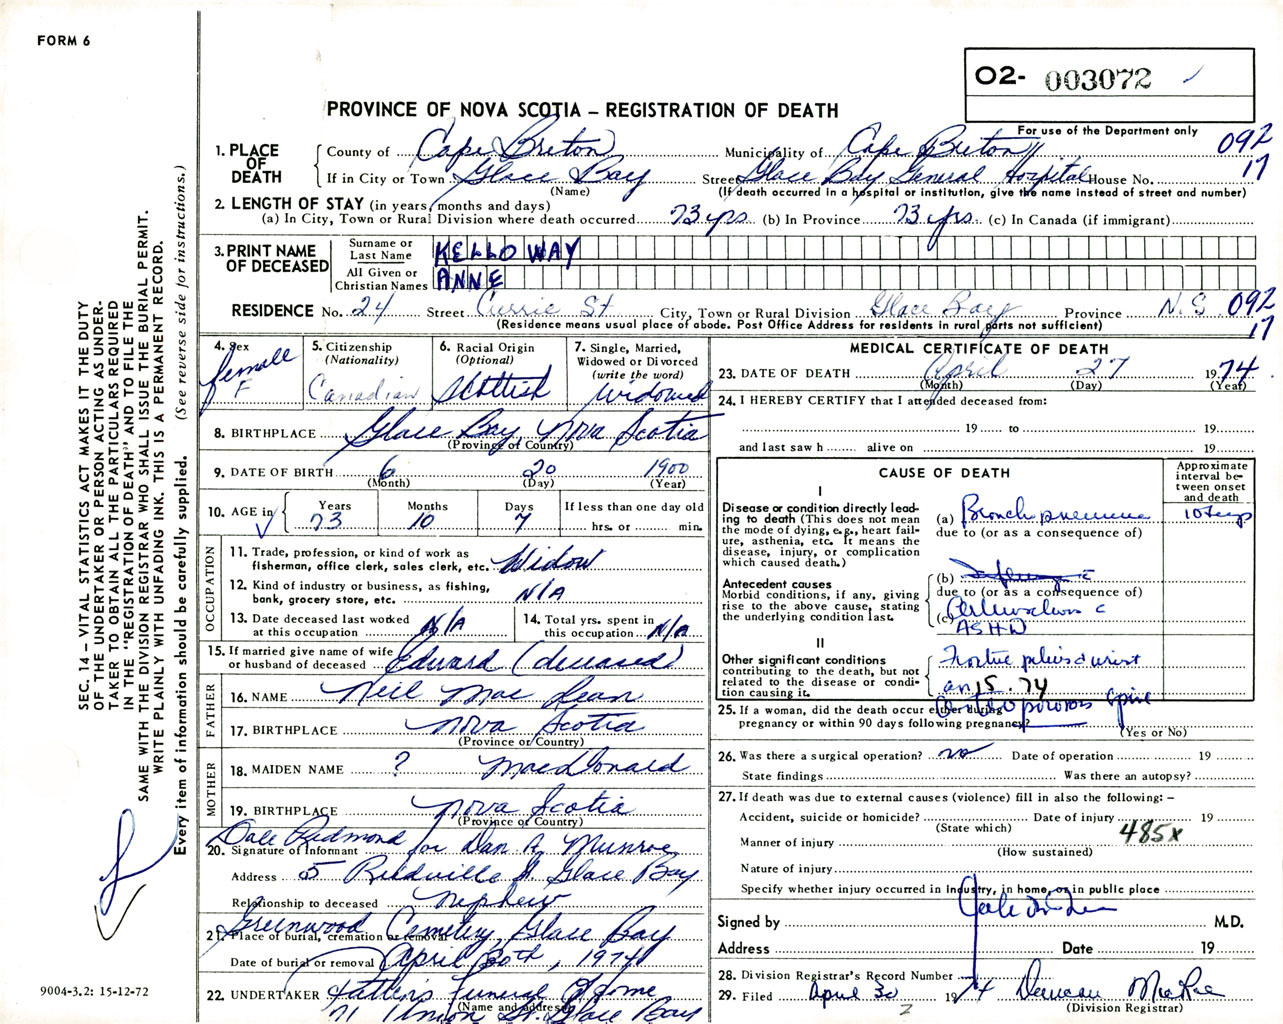 FORM 6
O2- 003072
PROVINCE OF NOVA SCOTIA – REGISTRATION OF DEATH
For use of the Department only
092
17
1. PLACE OF DEATH
County of Cape Breton Municipality of Cape Breton
If in City or Town Glace Bay Street Glace Bay General Hospital House No.
(Name) (If death occurred in a hospital or institution, give the name instead of street and number)
2. LENGTH OF STAY (in years, months and days)
(a) In City, Town or Rural Division where death occurred 73 yrs (b) In Province 73 yrs. (c) In Canada (if immigrant)
3. PRINT NAME OF DECEASED
Surname or Last Name KELLOWAY
All Given or Christian Names ANNE
RESIDENCE No. 24 Street Currie St City, Town or Rural Division Glace Bay Province N.S. 092
(Residence means usual place of abode. Post Office Address for residents in rural parts not sufficient) 17
4. Sex female F
5. Citizenship (Nationality) Canadian
6. Racial Origin (Optional) Scottish
7. Single, Married, Widowed or Divorced (write the word) widowed
8. BIRTHPLACE Glace Bay, Nova Scotia
(Province or Country)
9. DATE OF BIRTH 6 20 1900
(Month) (Day) (Year)
10. AGE in Years Months Days If less than one day old
73 10 7 hrs. or min.
OCCUPATION
11. Trade, profession, or kind of work as fisherman, office clerk, sales clerk, etc. Widow
12. Kind of industry or business, as fishing, bank, grocery store, etc. N/A
13. Date deceased last worked at this occupation N/A
14. Total yrs. spent in this occupation N/A
15. If married give name of wife or husband of deceased Edward (deceased)
FATHER
16. NAME Neil Mac Lean
17. BIRTHPLACE Nova Scotia
(Province or Country)
MOTHER
18. MAIDEN NAME ? MacDonald
19. BIRTHPLACE Nova Scotia
(Province or Country)
Dale Redmond for Dan A. Munroe
20. Signature of Informant
Address 5 St. Glace Bay
Relationship to deceased nephew
Greenwood Cemetery, Glace Bay
21. Place of burial, cremation or removal
Date of burial or removal April 30th, 1974
22. UNDERTAKER Funeral Home
(Name and address)
71 Union St. Glace Bay
MEDICAL CERTIFICATE OF DEATH
23. DATE OF DEATH April 27 1974
(Month) (Day) (Year)
24. I HEREBY CERTIFY that I attended deceased from:
19 to 19
and last saw h alive on 19
CAUSE OF DEATH
Approximate interval between onset and death
I
Disease or condition directly leading to death (This does not mean the mode of dying, e.g., heart failure, asthenia, etc. It means the disease, injury, or complication which caused death.)
(a) 10 days
due to (or as a consequence of)
Antecedent causes
Morbid conditions, if any, giving rise to the above cause, stating the underlying condition last.
(b)
due to (or as a consequence of)
(c)
ASHD
II
Other significant conditions contributing to the death, but not related to the disease or condition causing it.
15. 74
spine
25. If a woman, did the death occur either during pregnancy or within 90 days following pregnancy?
(Yes or No)
26. Was there a surgical operation? no Date of operation 19
State findings Was there an autopsy?
27. If death was due to external causes (violence) fill in also the following: –
Accident, suicide or homicide? Date of injury 19
(State which)
485x
Manner of injury
(How sustained)
Nature of injury
Specify whether injury occurred in Industry, in home, or in public place
Signed by M.D.
Address Date 19
28. Division Registrar's Record Number
29. Filed April 30 1974 Duncan MacRae
(Division Registrar)
SEC. 14 – VITAL STATISTICS ACT MAKES IT THE DUTY
OF THE UNDERTAKER OR PERSON ACTING AS UNDER-
TAKER TO OBTAIN ALL THE PARTICULARS REQUIRED
IN THE 'REGISTRATION OF DEATH' AND TO FILE THE
SAME WITH THE DIVISION REGISTRAR WHO SHALL ISSUE THE BURIAL PERMIT.
WRITE PLAINLY WITH UNFADING INK. THIS IS A PERMANENT RECORD.
Every item of information should be carefully supplied. (See reverse side for instructions.)
9004-3.2: 15-12-72